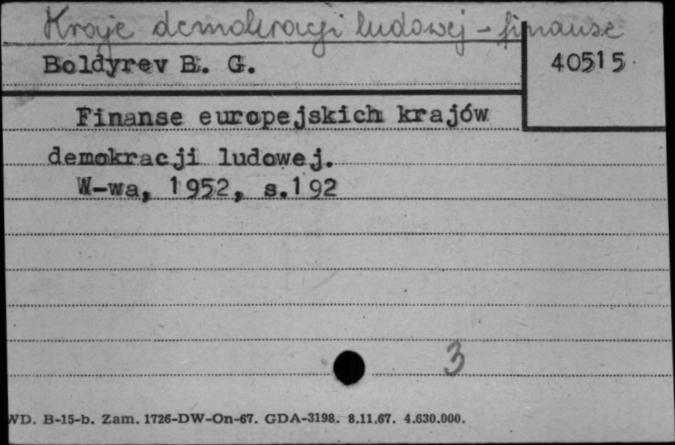 Kraje demokracji ludowej - finanse
Boldyrev B. G.
40515
Finanse europejskich krajów
demokracji ludowej.
W-wa, 1952, s.192
3
WD. B-15-b. Zam. 1726-DW-On-67. GDA-3198. 8.11.67. 4.630.000.